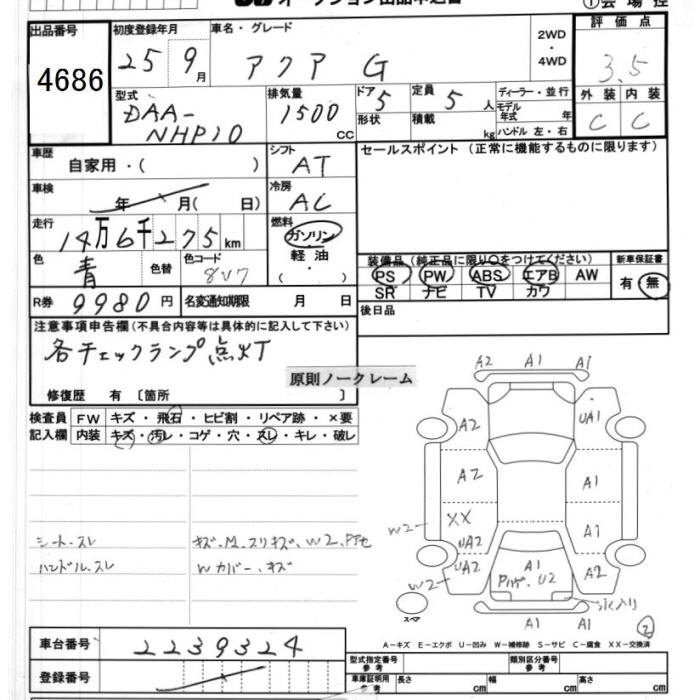 出品番号 初度登録年月 車名・グレード 2WD・4WD 評価点
4686 25 9月 アクア G 3.5
型式 排気量 ドア 5 定員 5人 ディーラー・並行 外装 内装
DAA-NHP10 1500 CC 形状 積載 kg モデル年式 年 C C
ハンドル 左・右
車歴 自家用・( ) シフト AT セールスポイント (正常に機能するものに限ります)
車検 年 月( 日) 冷房 AC
走行 14万6千275km 燃料 ガソリン・軽油・( )
色 青 色替 色コード 8V7
装備品 (純正品に限り○をつけてください) 新車保証書
PS PW ABS エアB AW 有・無
SR ナビ TV カワ
R券 9980円 名変通知期限 月 日 後日品
注意事項申告欄(不具合内容等は具体的に記入して下さい)
各チェックランプ点灯
原則ノークレーム
修復歴 有 〔箇所 〕
検査員 FW キズ・飛石・ヒビ割・リペア跡・×要
記入欄 内装 キズ・汚レ・コゲ・穴・スレ・キレ・破レ
シート、スレ キズ、M、スリキズ、W2、
ハンドル、スレ Wカバー、キズ
A2 A1 A1
A2 UA1
A2 A1
XX A1
W2 UA2
W2 UA2 A1 A2
U2
A1 A1
スペア
②
A−キズ E−エクボ U−凹み W−補修跡 S−サビ C−腐食 XX−交換済
車台番号 2239324
登録番号
型式指定番号 参考 類別区分番号 参考
車庫証明用 参考 長さ cm 幅 cm 高さ cm